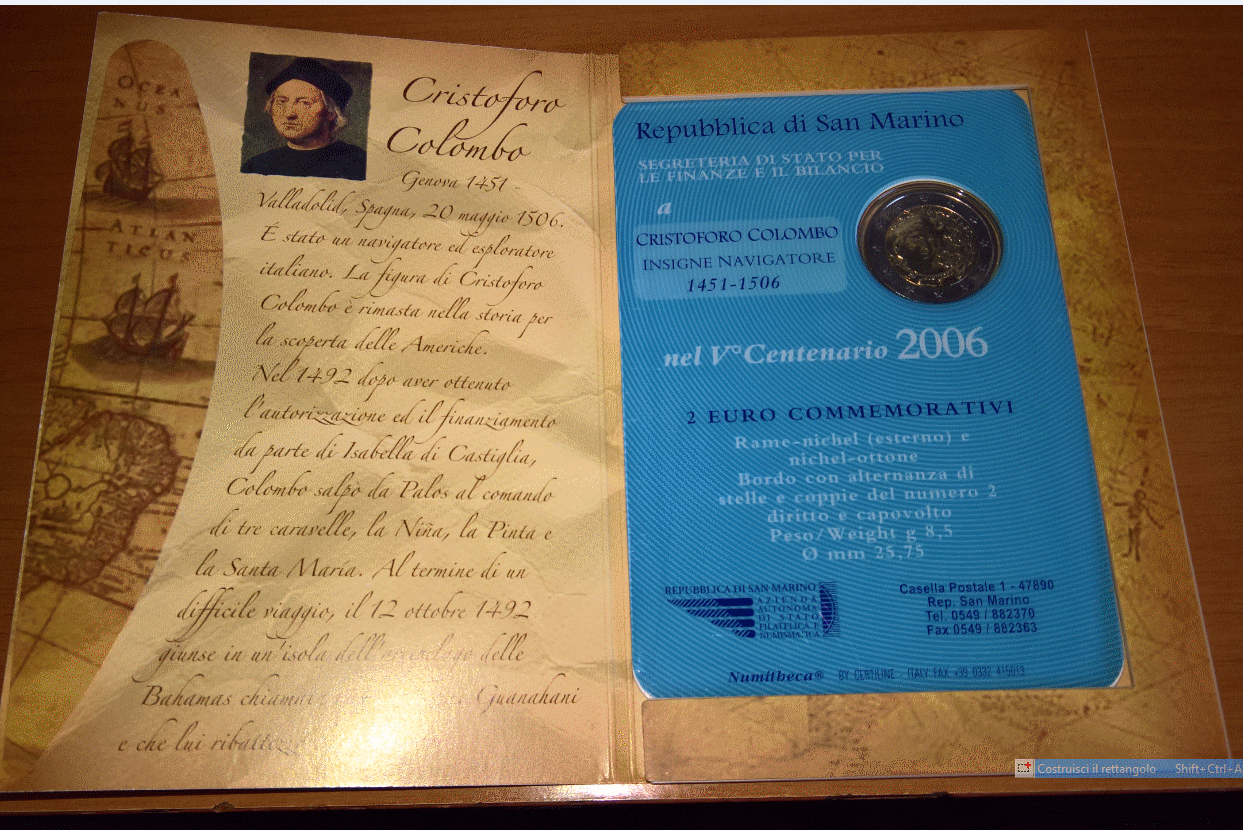 OCEA
NUS
ATLAN
TICUS
Cristoforo
Colombo
Genova 1451 -
Valladolid, Spagna, 20 maggio 1506.
È stato un navigatore ed esploratore
italiano. La figura di Cristoforo
Colombo è rimasta nella storia per
la scoperta delle Americhe.
Nel 1492 dopo aver ottenuto
l'autorizzazione ed il finanziamento
da parte di Isabella di Castiglia,
Colombo salpò da Palos al comando
di tre caravelle, la Niña, la Pinta e
la Santa María. Al termine di un
difficile viaggio, il 12 ottobre 1492
giunse in un'isola dell'arcipelago delle
Bahamas Guanahani
e che lui
Repubblica di San Marino
SEGRETERIA DI STATO PER
LE FINANZE E IL BILANCIO
a
CRISTOFORO COLOMBO
INSIGNE NAVIGATORE
1451-1506
nel V°Centenario 2006
2 EURO COMMEMORATIVI
Rame-nichel (esterno) e
nichel-ottone
Bordo con alternanza di
stelle e coppie del numero 2
diritto e capovolto
Peso/Weight g 8,5
Ø mm 25,75
REPUBBLICA DI SAN MARINO
AZIENDA
AUTONOMA
DI STATO
FILATELICA E
NUMISMATICA
Casella Postale 1 - 47890
Rep. San Marino
Tel. 0549 / 882370
Fax 0549 / 882363
Numilbeca® BY CERTILINE - ITALY FAX +39 0332 415013
Costruisci il rettangolo Shift+Ctrl+A